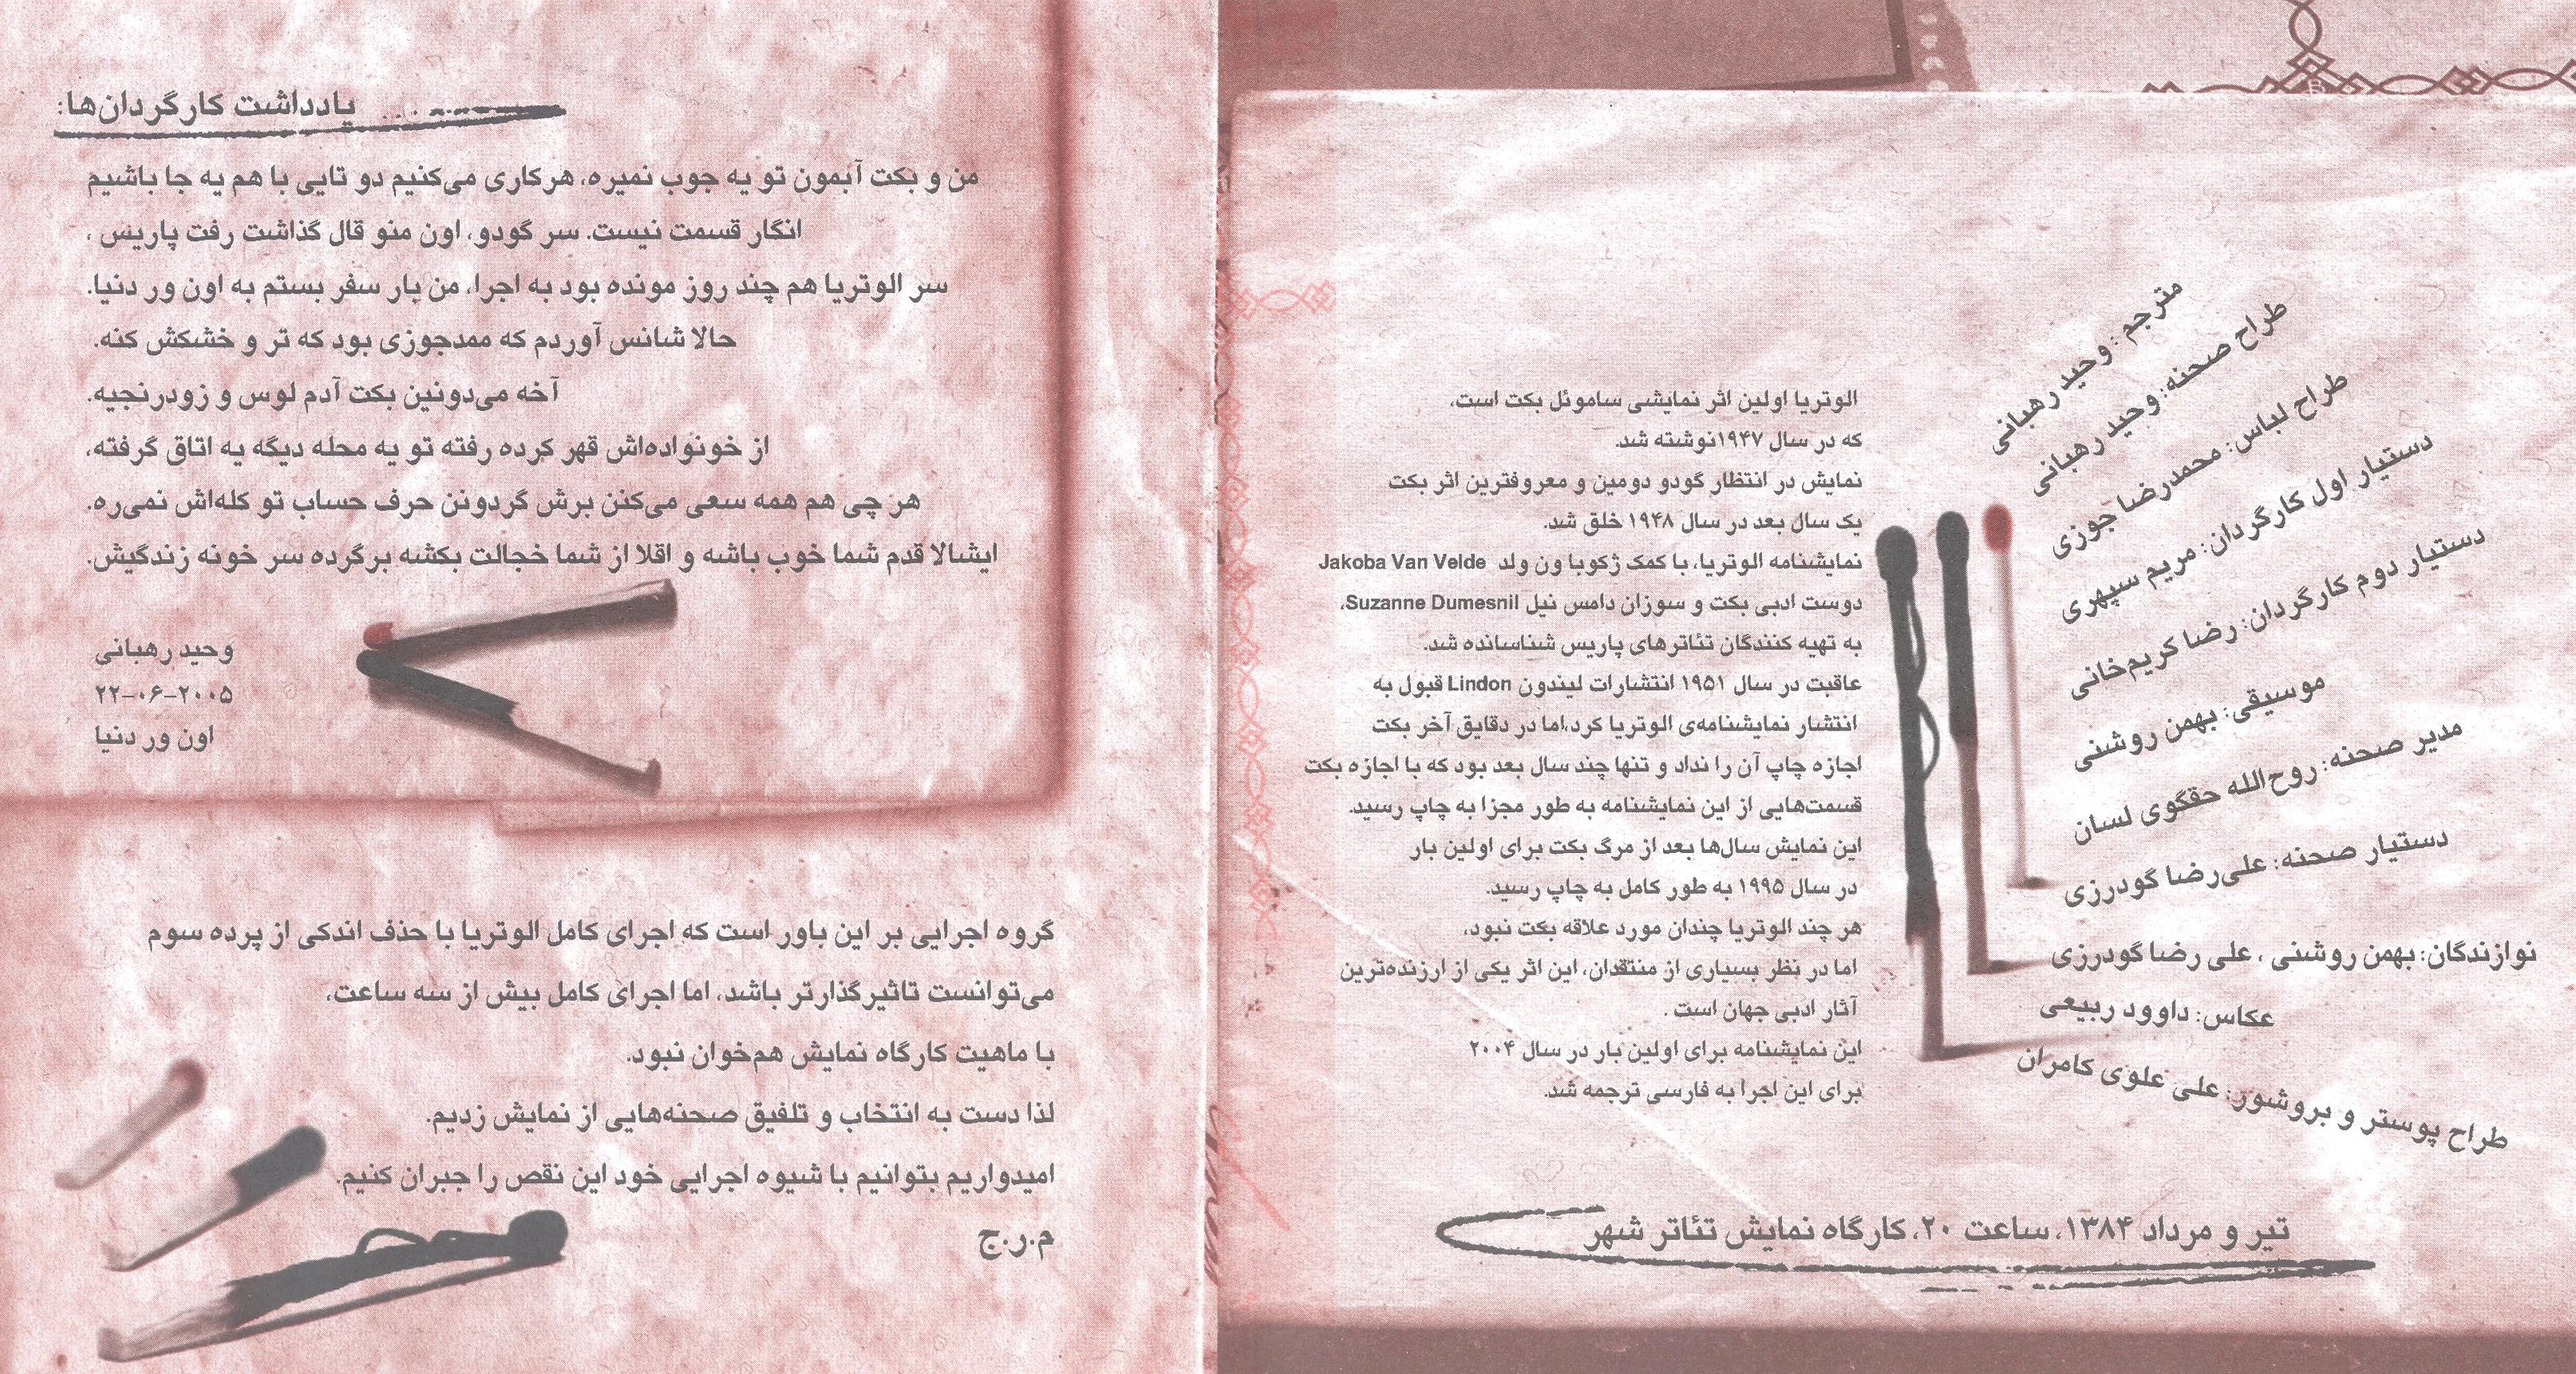 مترجم : وحید رهبانی
طراح صحنه: وحید رهبانی
طراح لباس: محمدرضا جوزی
دستیار اول کارگردان: مریم سپهری
دستیار دوم کارگردان: رضا کریم‌خانی
موسیقی: بهمن روشنی
مدیر صحنه: روح‌الله حقگوی لسان
دستیار صحنه: علی‌رضا گودرزی
نوازندگان: بهمن روشنی ، علی رضا گودرزی
عکاس: داوود ربیعی
طراح پوستر و بروشور: علی علوی کامران
الوتریا اولین اثر نمایشی ساموئل بکت است،
که در سال ۱۹۴۷نوشته شد.
نمایش در انتظار گودو دومین و معروفترین اثر بکت
یک سال بعد در سال ۱۹۴۸ خلق شد.
نمایشنامه الوتریا، با کمک ژکوبا ون ولد Jakoba Van Velde
دوست ادبی بکت و سوزان دامس نیل Suzanne Dumesnil،
به تهیه کنندگان تئاترهای پاریس شناسانده شد.
عاقبت در سال ۱۹۵۱ انتشارات لیندون Lindon قبول به
انتشار نمایشنامه‌ی الوتریا کرد،اما در دقایق آخر بکت
اجازه چاپ آن را نداد و تنها چند سال بعد بود که با اجازه بکت
قسمت‌هایی از این نمایشنامه به طور مجزا به چاپ رسید.
این نمایش سال‌ها بعد از مرگ بکت برای اولین بار
در سال ۱۹۹۵ به طور کامل به چاپ رسید.
هر چند الوتریا چندان مورد علاقه بکت نبود،
اما در نظر بسیاری از منتقدان، این اثر یکی از ارزنده‌ترین
آثار ادبی جهان است .
این نمایشنامه برای اولین بار در سال ۲۰۰۴
برای این اجرا به فارسی ترجمه شد.
تیر و مرداد ۱۳۸۴، ساعت ۲۰، کارگاه نمایش تئاتر شهر
یادداشت کارگردان‌ها:
من و بکت آبمون تو یه جوب نمیره، هرکاری می‌کنیم دو تایی با هم یه جا باشیم
انگار قسمت نیست. سر گودو، اون منو قال گذاشت رفت پاریس ،
سر الوتریا هم چند روز مونده بود به اجرا، من بار سفر بستم به اون ور دنیا.
حالا شانس آوردم که ممدجوزی بود که تر و خشکش کنه.
آخه می‌دونین بکت آدم لوس و زودرنجیه.
از خونواده‌اش قهر کرده رفته تو یه محله دیگه یه اتاق گرفته،
هر چی هم همه سعی می‌کنن برش گردونن حرف حساب تو کله‌اش نمی‌ره.
ایشالا قدم شما خوب باشه و اقلا از شما خجالت بکشه برگرده سر خونه زندگیش.
وحید رهبانی
۲۲-۰۶-۲۰۰۵
اون ور دنیا
گروه اجرایی بر این باور است که اجرای کامل الوتریا با حذف اندکی از پرده سوم
می‌توانست تاثیرگذارتر باشد، اما اجرای کامل بیش از سه ساعت،
با ماهیت کارگاه نمایش هم‌خوان نبود.
لذا دست به انتخاب و تلفیق صحنه‌هایی از نمایش زدیم.
امیدواریم بتوانیم با شیوه اجرایی خود این نقص را جبران کنیم.
م.ر.ج